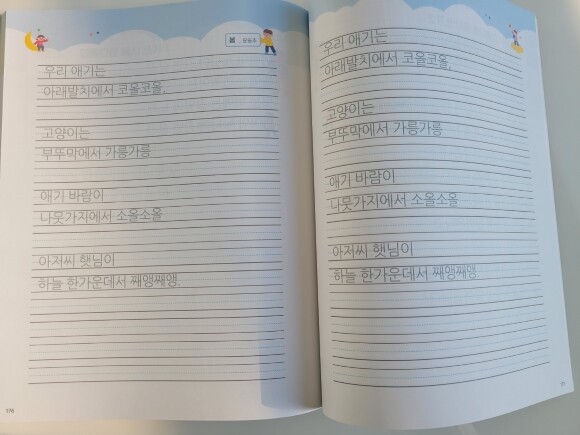 봄_윤동주
우리 애기는
아래발치에서 코올코올,
고양이는
부뚜막에서 가릉가릉
애기 바람이
나뭇가지에서 소올소올
아저씨 햇님이
하늘 한가운데서 째앵째앵.
176
우리 애기는
아래발치에서 코올코올,
고양이는
부뚜막에서 가릉가릉
애기 바람이
나뭇가지에서 소올소올
아저씨 햇님이
하늘 한가운데서 째앵째앵.